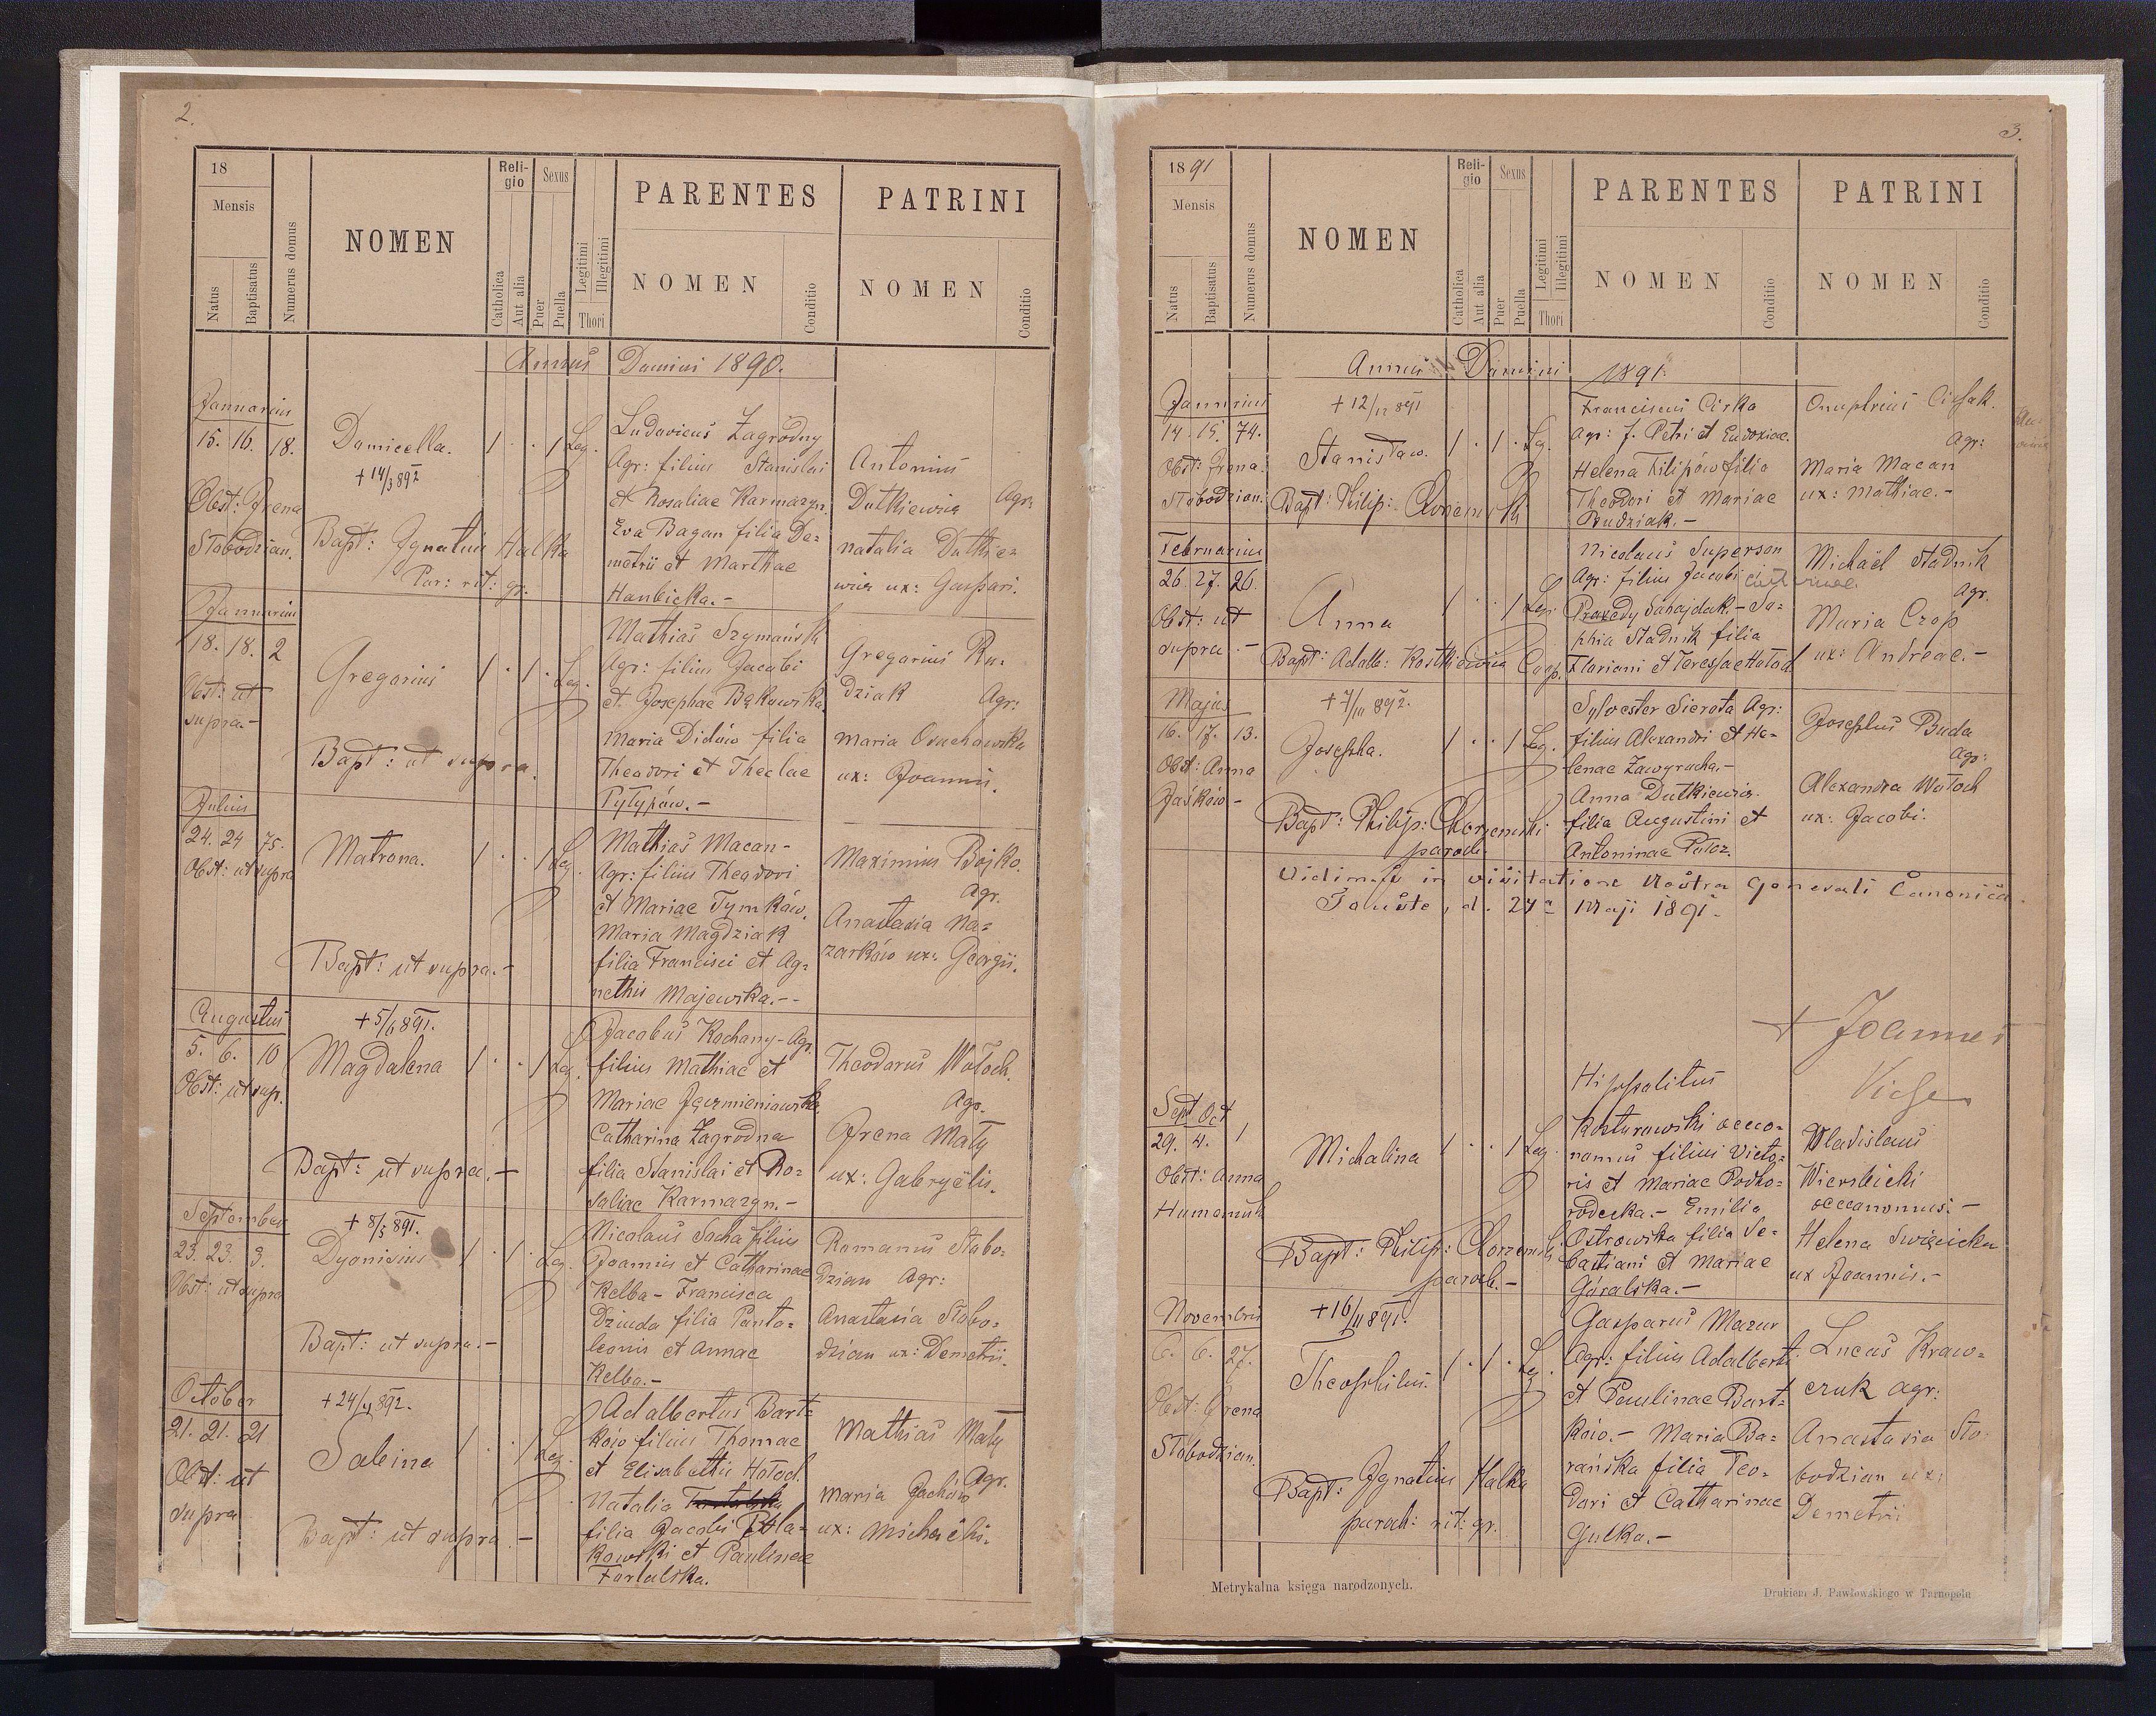 2.
18
Mensis
Natus
Baptisatus
Numerus domus
NOMEN
Religio
Catholica
Aut alia
Sexus
Puer
Puella
Legitimi
Illegitimi
Thori
PARENTES
NOMEN
Conditio
PATRINI
NOMEN
Conditio
Annus Domini 1890.
Januarius
15. 16. 18.
Obst: Irena
Słobodzian.
Domicella.
+ 14/3 892
Bapt: Ignatius Halka
Par: rit: gr.
1 . . 1 Leg.
Ludovicus Zagrodny
Agr: filius Stanislai
et Rosaliae Karmazyn.
Eva Bagan filia De=
metrii et Marthae
Hanbicka.-
Antonius
Dutkiewicz Agr:
Natalia Dutkie=
wicz ux: Gaspari.
Januarius
18. 18. 2
Obst: ut
supra.-
Gregorius
Bapt: ut supra.
1 . 1 . Leg.
Mathias Szymański
Agr: filius Jacobi
et Josephae Bąkowska.
Maria Didów filia
Theodori et Theclae
Pyłypów.-
Gregorius Ru-
dziak Agr:
Maria
ux: Joannis.
Julius
24. 24 75.
Obst: ut supra
Matrona.
Bapt: ut supra.-
1 . . 1 Leg.
Mathias Macan-
Agr: filius Theodori
et Mariae Tymków.
Maria Magdziak
filia Francisci et Ag=
nethis Majewska.--
Maximus Bojko.
Agr.
Anastasia Na=
zarków ux: Georgii.
Augustus
5. 6. 10
Obst: ut sup.
+5/6 891.
Magdalena
Bapt: ut supra.-
1 . . 1 Leg.
Jacobus Kochany-Agr.
filius Mathiae et
Mariae Jęczmieniowska.
Catharina Zagrodna
filia Stanislai et Ro=
saliae Karmazyn.-
Theodorus Wołoch.
Agr.
Irena Mały
ux: Gabryelis.
September
23. 23. 3.
Obst: ut supra
+ 8/3 891.
Dyonisius
Bapt: ut supra.-
1 . 1 . Leg.
Nicolaus Socha filius
Joannis et Catharinae
Kelba - Francisca
Dziuda filia Panta=
leonis et Annae
Kelba.-
Romanus Słobo=
dzian Agr:
Anastasia Słobo=
dzian ux: Demetrii.
October
21. 21. 21
Obst: ut
supra
+ 24/ 892.
Sabina
Bapt: ut supra.-
1 . . 1 Leg.
Adalbertus Bart=
ków filius Thomae
et Elisabethis Hołod.
Natalia
filia Jacobi
kowski et Paulinae
Mathias Mały
Agr.
Maria Jachów
ux: Michaëlis.
3.
1891
Mensis
Natus
Baptisatus
Numerus domus
NOMEN
Religio
Catholica
Aut alia
Sexus
Puer
Puella
Legitimi
Illegitimi
Thori
PARENTES
NOMEN
Conditio
PATRINI
NOMEN
Conditio
Annus Domini 1891.
Januarius
14. 15. 74.
Obst: Irena
Słobodzian.
+ 12/12 891
Stanisław.
Bapt: Philip: Chorzemski
1 . 1 . Leg.
Franciscus Cirka
Agr: f. Petri et Eudoxiae.
Helena Filipów filia
Theodori et Mariae
Rudziak.-
Onuphrius
Agr:
Maria Macan
ux: Mathiae.-
Februarius
26. 27. 26.
Obst: ut
supra.-
Anna
Bapt: Adalb: Kostkiewicz Coop.
1 . . 1 Leg.
Nicolaus Superson
Agr: filius Jacobi
Praxedy Sahajdak.- So=
phia Stadnik filia
Floriani et Teressae Hołod
Michaël Stadnik
Agr.
Maria Czop
ux: Andreae.-
Majus
16. 17. 13.
Obst: Anna
Jaśków-
+ 7/III 892.
Josepha.
Bapt: Philip: Chorzemski
paroch.
1 . . 1 Leg.
Sylvester Sierota Agr:
filius Alexandri et He=
lenae Zawyrucha.-
Anna Dutkiewicz.
filia Augustini et
Antoninae
Josephus Buda
Agr:
Alexandra Wołoch
ux: Jacobi.
Vidimus in visitatione Nostra Generali Canonica.
Touste, d. 24ª Maji 1891.
+ Joannes
Sept Oct
29. 4. 1
Obst: Anna
Michalina
Bapt: Philip: Chorzemski.
paroch.-
1 . . 1 Leg.
Hippolitus
Kosturowski oeco=
nomus filius Victo=
ris et Mariae Podho=
rodecka.- Emilia
Ostrowska filia Se=
bastiani et Mariae
Góralska.-
Wladislaus
Wierzbicki
Helena Swięcicka
ux Joannis.-
Novembris
6. 6. 27.
Obst: Irena
Słobodzian.
+16/11 891.
Theophilus.
Bapt: Ignatius Halka
paroch: rit: gr.
1 . 1 . Leg.
Gasparus Mazur
Agr: filius Adalberti
et Paulinae Bart=
ków.- Maria Ba=
rańska filia Teo=
dori et Catharinae
Gulka.-
Lucas Kraw=
czuk agr:
Anastasia Sło=
bodzian ux:
Demetrii
Metrykalna księga narodzonych.
Drukiem J. Pawłowskiego w Tarnopolu